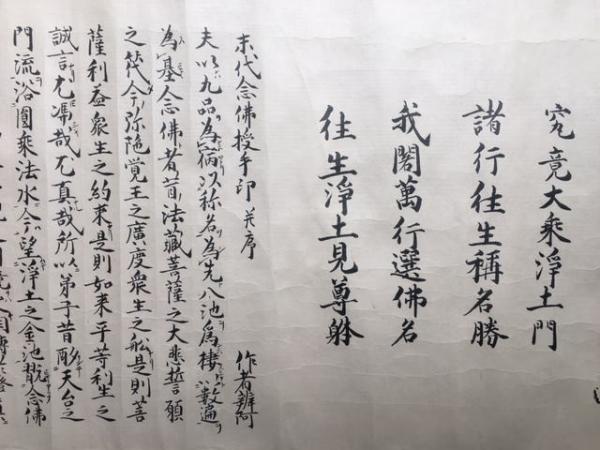 究竟大乘淨土門
諸行往生稱名勝
我閣萬行選佛名
往生淨土見尊躰
末代念佛授手印 并序 作者辨阿
夫以九品為宿以称名為先八池為棲以數遍
為基念佛者昔法藏菩薩之大悲誓願
之筏今弥陀覚王之廣度衆生之船是則菩
薩利益衆生之約束是則如来平等利生之
誠言尤憑哉尤真哉所以弟子昔酌天台之
門流浴圓乘法水今望淨土之金池翫念佛